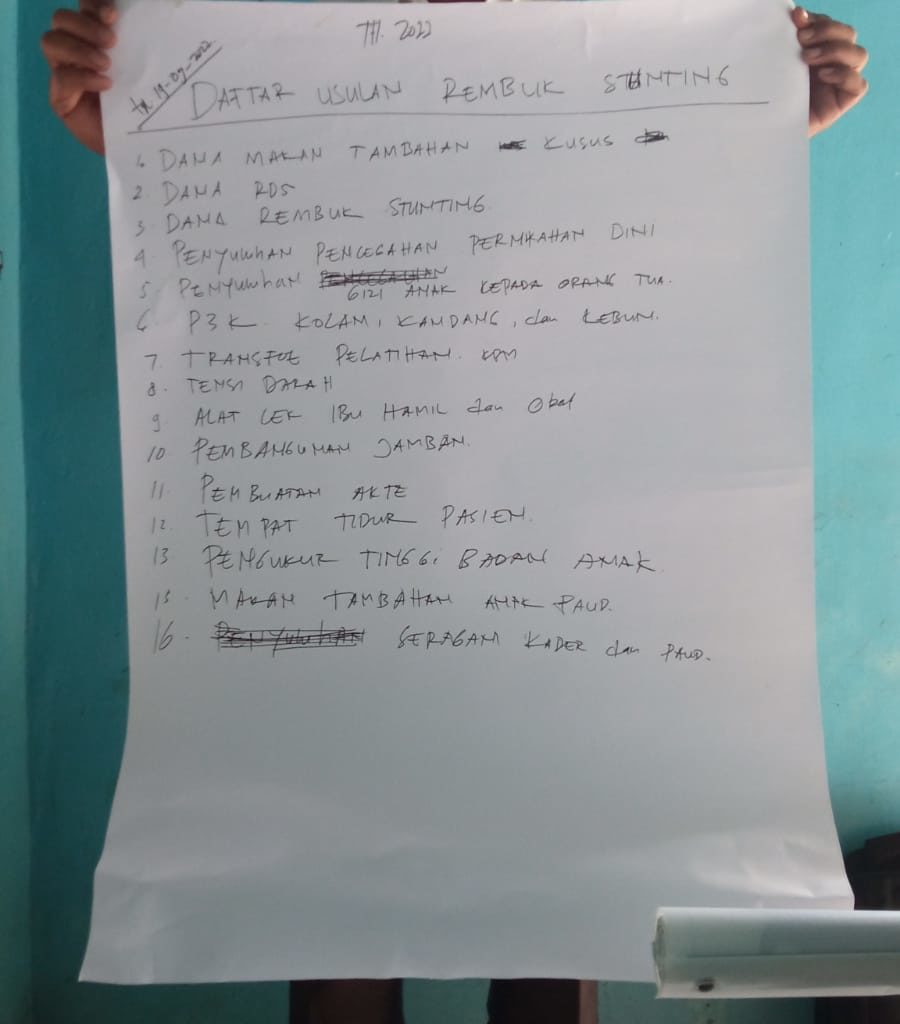 TH. 2022
DAFTAR USULAN REMBUK STUNTING
1. DANA MAKAN TAMBAHAN KUSUS
2. DANA RDS
3. DANA REMBUK STUNTING
4. PENYULUHAN PENCEGAHAN PERNIKAHAN DINI
5. PENYULUHAN GIZI ANAK KEPADA ORANG TUA.
6. P3K. KOLAM, KANDANG, dan KEBUN.
7. TRANSFOE PELATIHAN. KPM
8. TENSI DARAH
9. ALAT CEK IBU HAMIL dan Obat
10. PEMBANGUNAN JAMBAN.
11. PEMBUATAN AKTE
12. TEMPAT TIDUR PASIEN.
13 PENGUKUR TINGGI BADAN ANAK
15. MAKAN TAMBAHAN ANAK PAUD.
16. SERAGAM KADER dan PAUD.